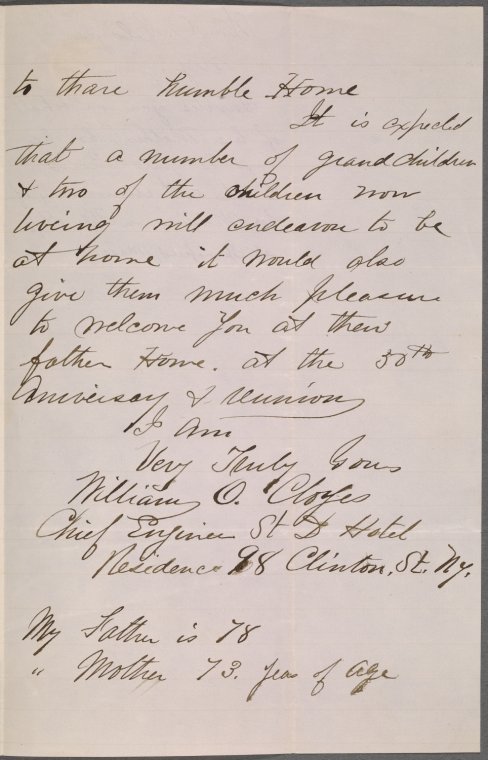 to thare humble Home
It is expected
that a number of grand children
& two of the children now
liveing will endeavor to be
at home it would also
give them much pleasure
to welcome You at their
father Home. at the 50th
Aniversay & reunion
I am
Very Truly Yours
William O. Cloyes
Chief Engineer St D Hotel
Residence 98 Clinton. St. Ny.
My Father is 78
" Mother 73. years of age